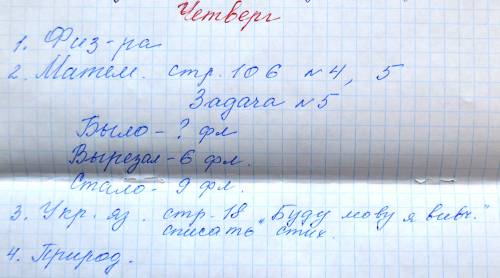 Четверг
1. Физ-ра
2. Матем. стр. 106 №4, 5
Задача №5
Было - ? фл
Вырезал - 6 фл.
Стало - 9 фл.
3. Укр. яз. стр. 18 „Буду мову я вивч."
списать стих.
4. Природ.